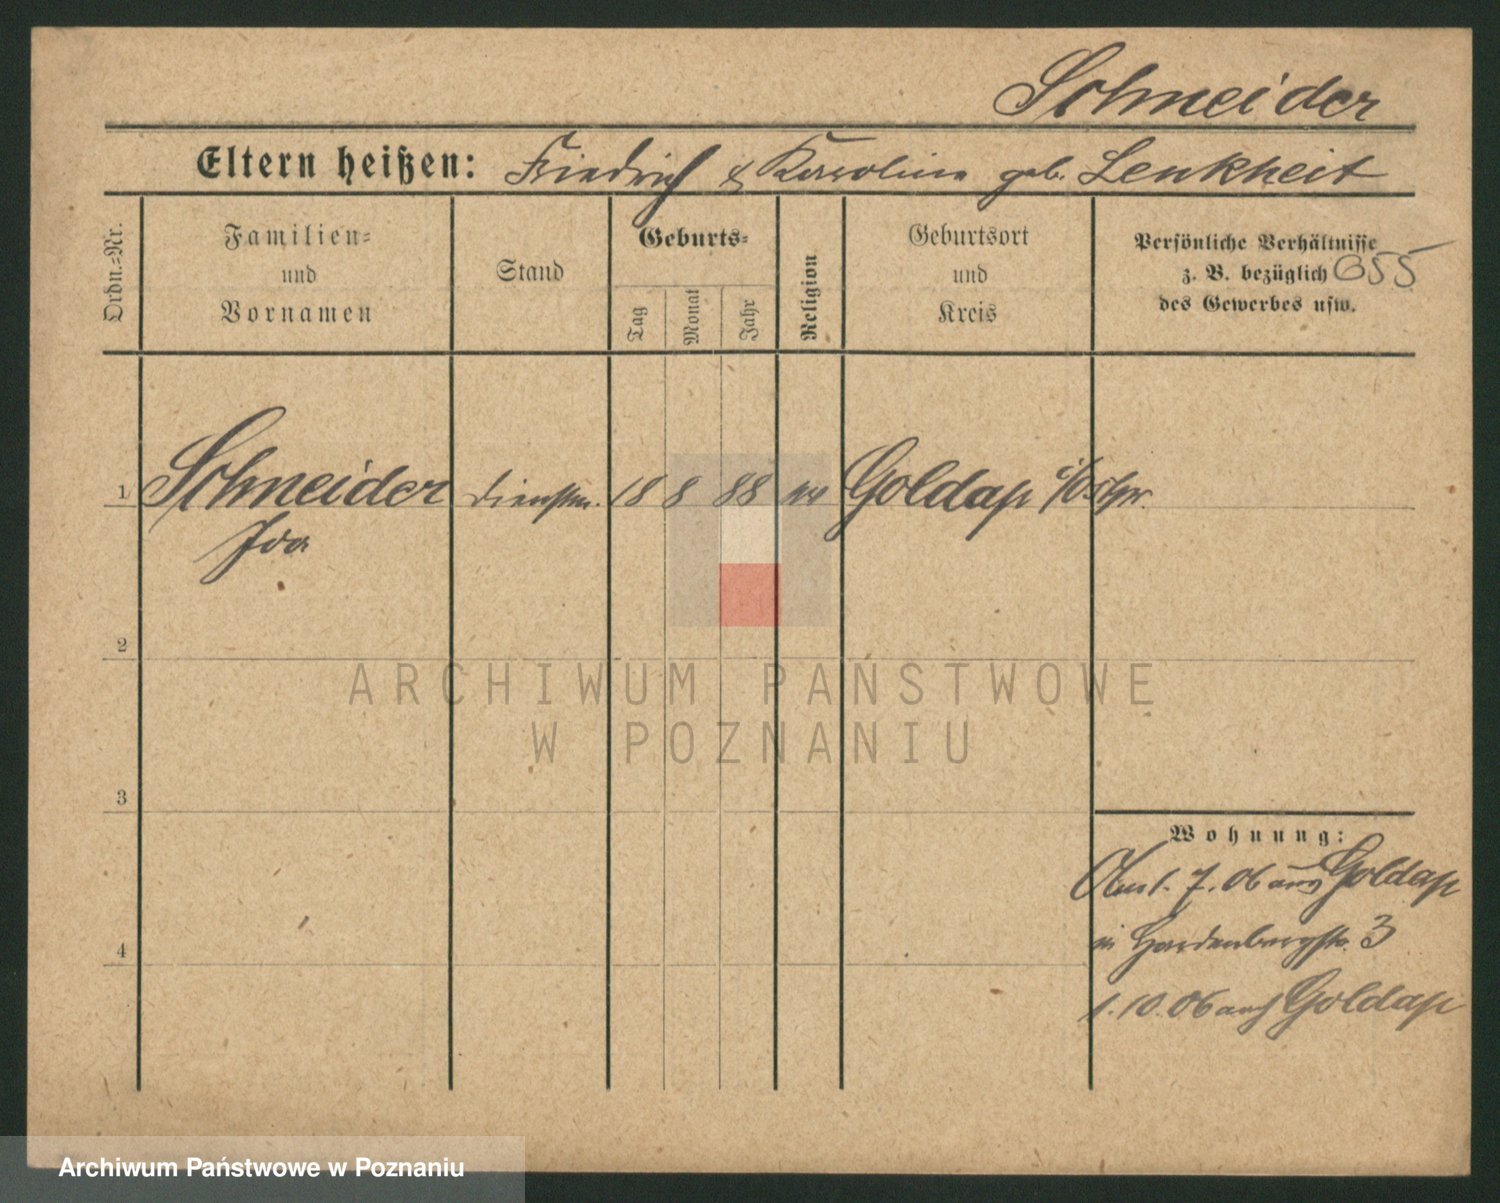 Schneider
Eltern heißen: Friedrich & Karoline geb. Lenkheit
Ordn.-Nr.
Familien-
und
Vornamen
Stand
Geburts-
Tag
Monat
Jahr
Religion
Geburtsort
und
Kreis
Persönliche Verhältnisse
z. B. bezüglich
des Gewerbes usw.
655
1 Schneider Dienstm. 18 8 88 Goldap i/Ostpr.
Ida
2
3
4
Wohnung:
1. 7. 06 aus Goldap
in Hardenbergstr. 3
1. 10. 06 nach Goldap
ARCHIWUM PAŃSTWOWE
W POZNANIU
Archiwum Państwowe w Poznaniu